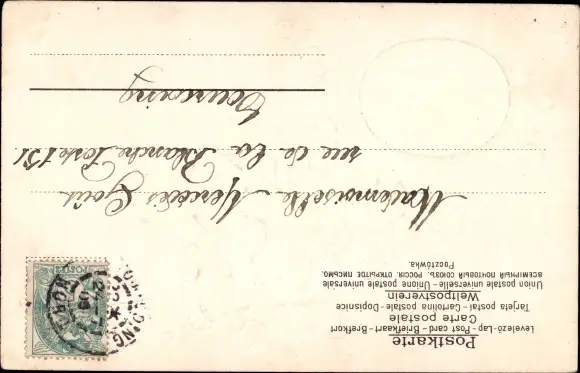 Postkarte
Levelező-Lap - Post card - Briefkaart - Brefkort
Carte postale
Tarjeta postal - Cartolina postale - Dopisnice
Weltpostverein
Union postale universelle - Unione postale universale
ВСЕМІРНЫЙ ПОЧТОВЫЙ СОЮЗЪ. РОССІЯ. ОТКРЫТОЕ ПИСЬМО.
Pocztówka.
Mademoiselle Mercédès
rue de la Blanche Porte 151
Tourcoing
POSTES